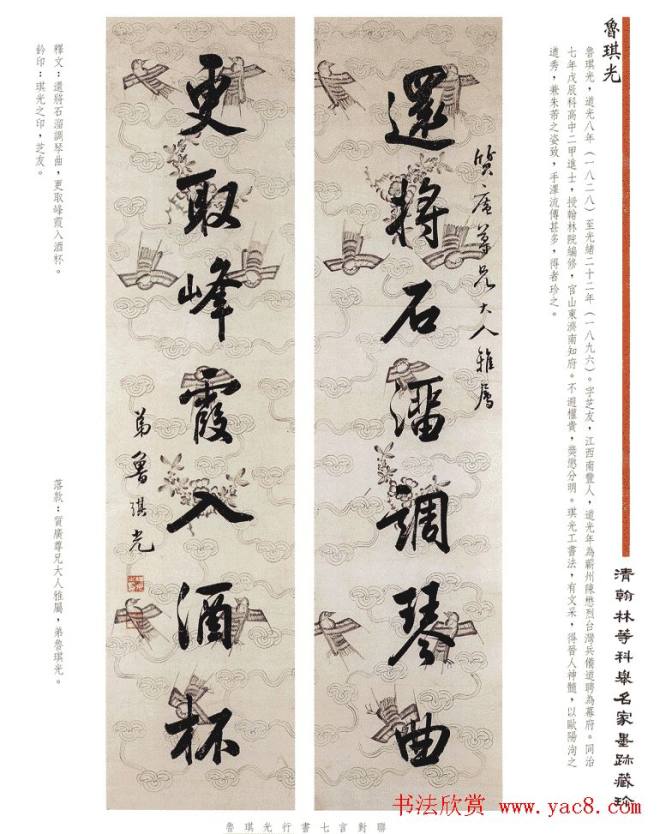 清翰林等科舉名家墨跡藏珍
魯琪光
魯琪光，道光八年（一八二八）至光緒二十二年（一八九六）。字芝友，江西南豐人，道光年為蘄州陳懋烈台灣兵備道聘為幕府。同治
七年戊辰科高中二甲進士，授翰林院編修，官山東濟南知府。不避權貴，獎懲分明。琪光工書法，有文采，得晉人神髓，以歐陽洵之
遒秀，兼朱芾之姿致，手澤流傳甚多，得者珍之。
質庵尊兄大人雅屬
還將石溜調琴曲
更取峰霞入酒杯
弟魯琪光
釋文：還將石溜調琴曲，更取峰霞入酒杯。
鈐印：琪光之印，芝友。
落款：質廣尊兄大人雅屬，弟魯琪光。
魯琪光行書七言對聯
书法欣赏 www.yac8.com